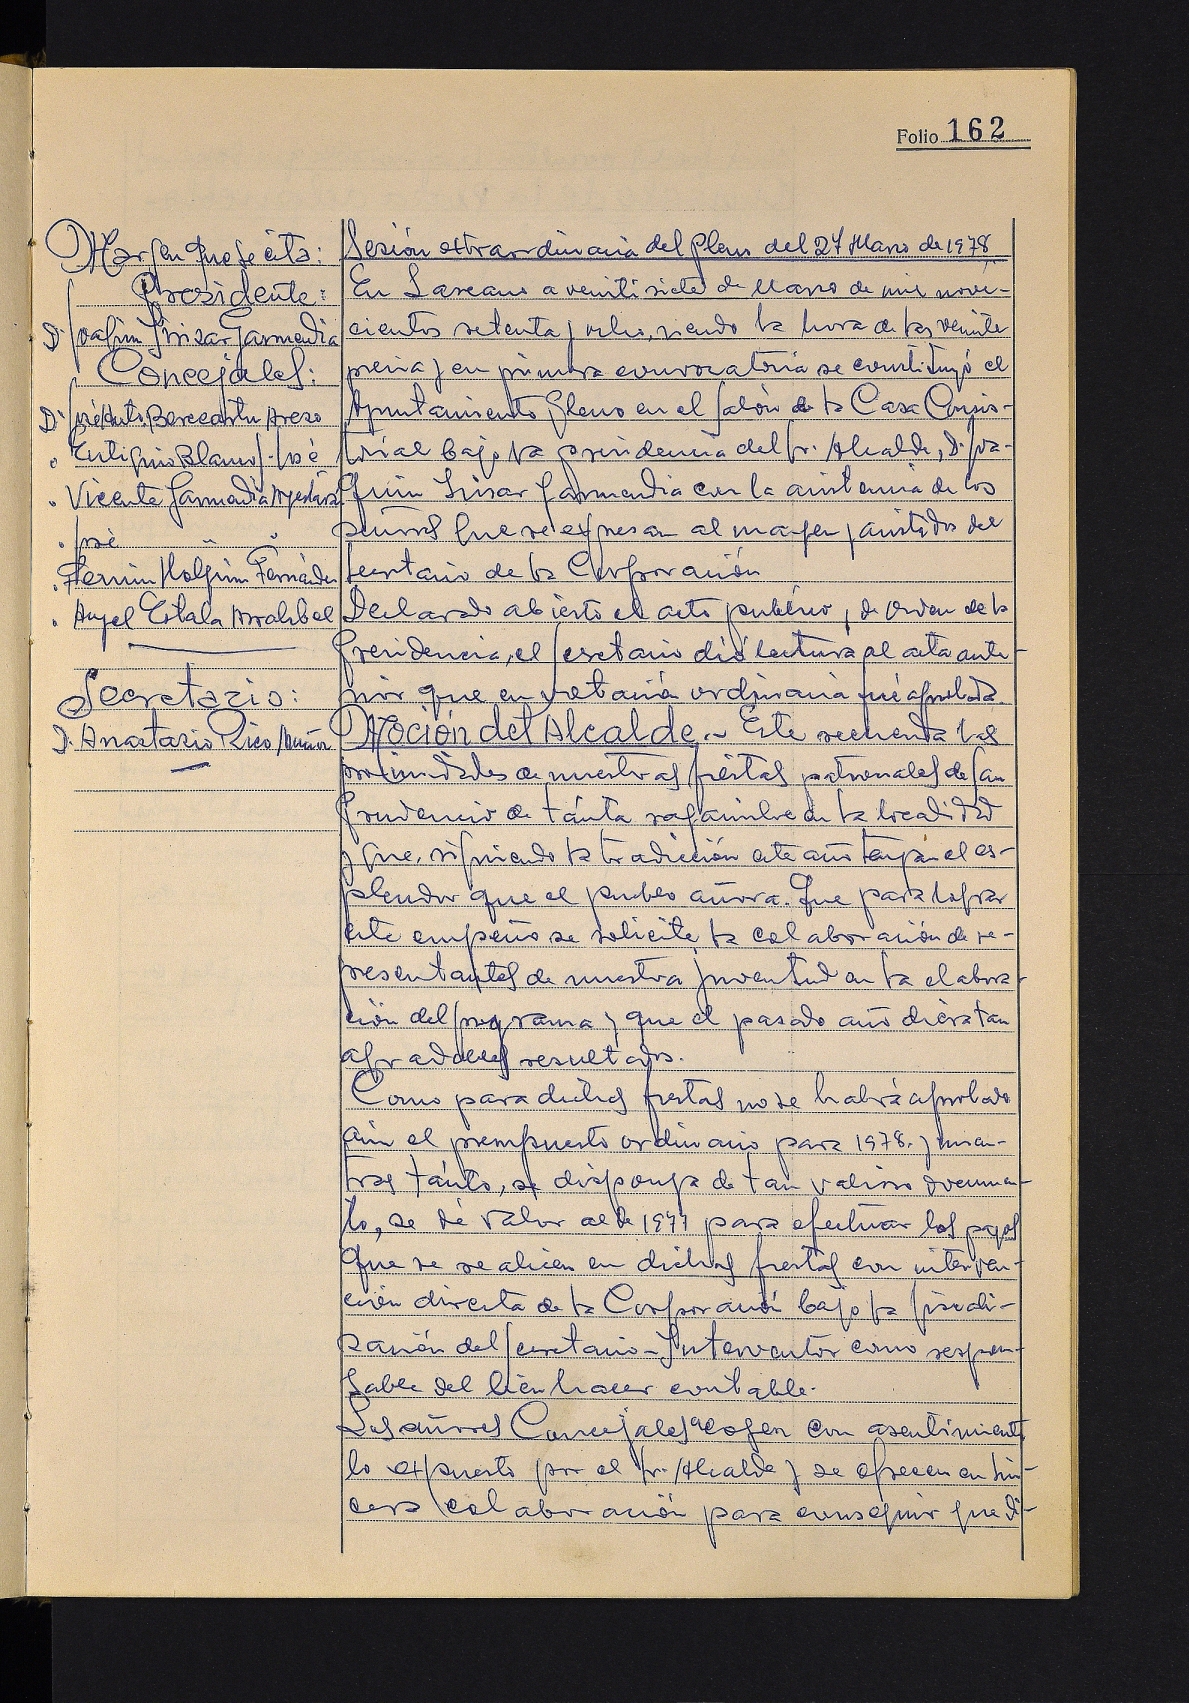 Folio 162
Margen que se cita:
Presidente:
D. Joaquin Irizar Garmendia
Concejales:
D. José Anto. Berecartu Areso
" Eutiquio Blanco S. José
" Vicente Garmendia
" José " "
" Fermin Holguin Fernández
" Angel Estala
Secretario:
D. Anastasio Rico Muñoz
Sesión extraordinaria del Pleno del 27 Marzo de 1978
En Lazcano a veintisiete de Marzo de mil nove-
cientos setenta y ocho, siendo la hora de las veinte
previa y en primera convocatoria se constituyó el
Ayuntamiento Pleno en el Salón de la Casa Consis-
torial bajo la presidencia del Sr. Alcalde, D. Joa-
quin Irizar Garmendia con la asistencia de los
señores que se expresan al margen y asistidos del
Secretario de la Corporación
Declarado abierto el acto público, de orden de la
Presidencia, el Secretario dió lectura al acta ante-
rior que en votación ordinaria fué aprobada.
Moción del Alcalde.- Este recuerda las
proximidades de nuestras fiestas patronales de San
Prudencio de tánta raigambre en la localidad
y que, siguiendo la tradicción este año tengan el es-
plendor que el pueblo añora. Que para lograr
este empeño se solicite la colaboración de re-
presentantes de nuestra juventud en la elabora-
ción del programa y que el pasado año diera tan
agradables resultados.
Como para dichas fiestas no se habrá aprobado
aún el presupuesto ordinario para 1978. y mien-
tras tánto, se disponga de tan valioso documen-
to, se dé valor al de 1977 para efectuar los pagos
que se realicen en dichas fiestas con interven-
ción directa de la Corporación bajo la fiscali-
zación del Secretario-Interventor como respon-
sable del bien hacer contable.
Los señores Concejales acogen con asentimiento
lo expuesto por el Sr. Alcalde y se ofrecen en sin-
cera colaboración para conseguir que di-